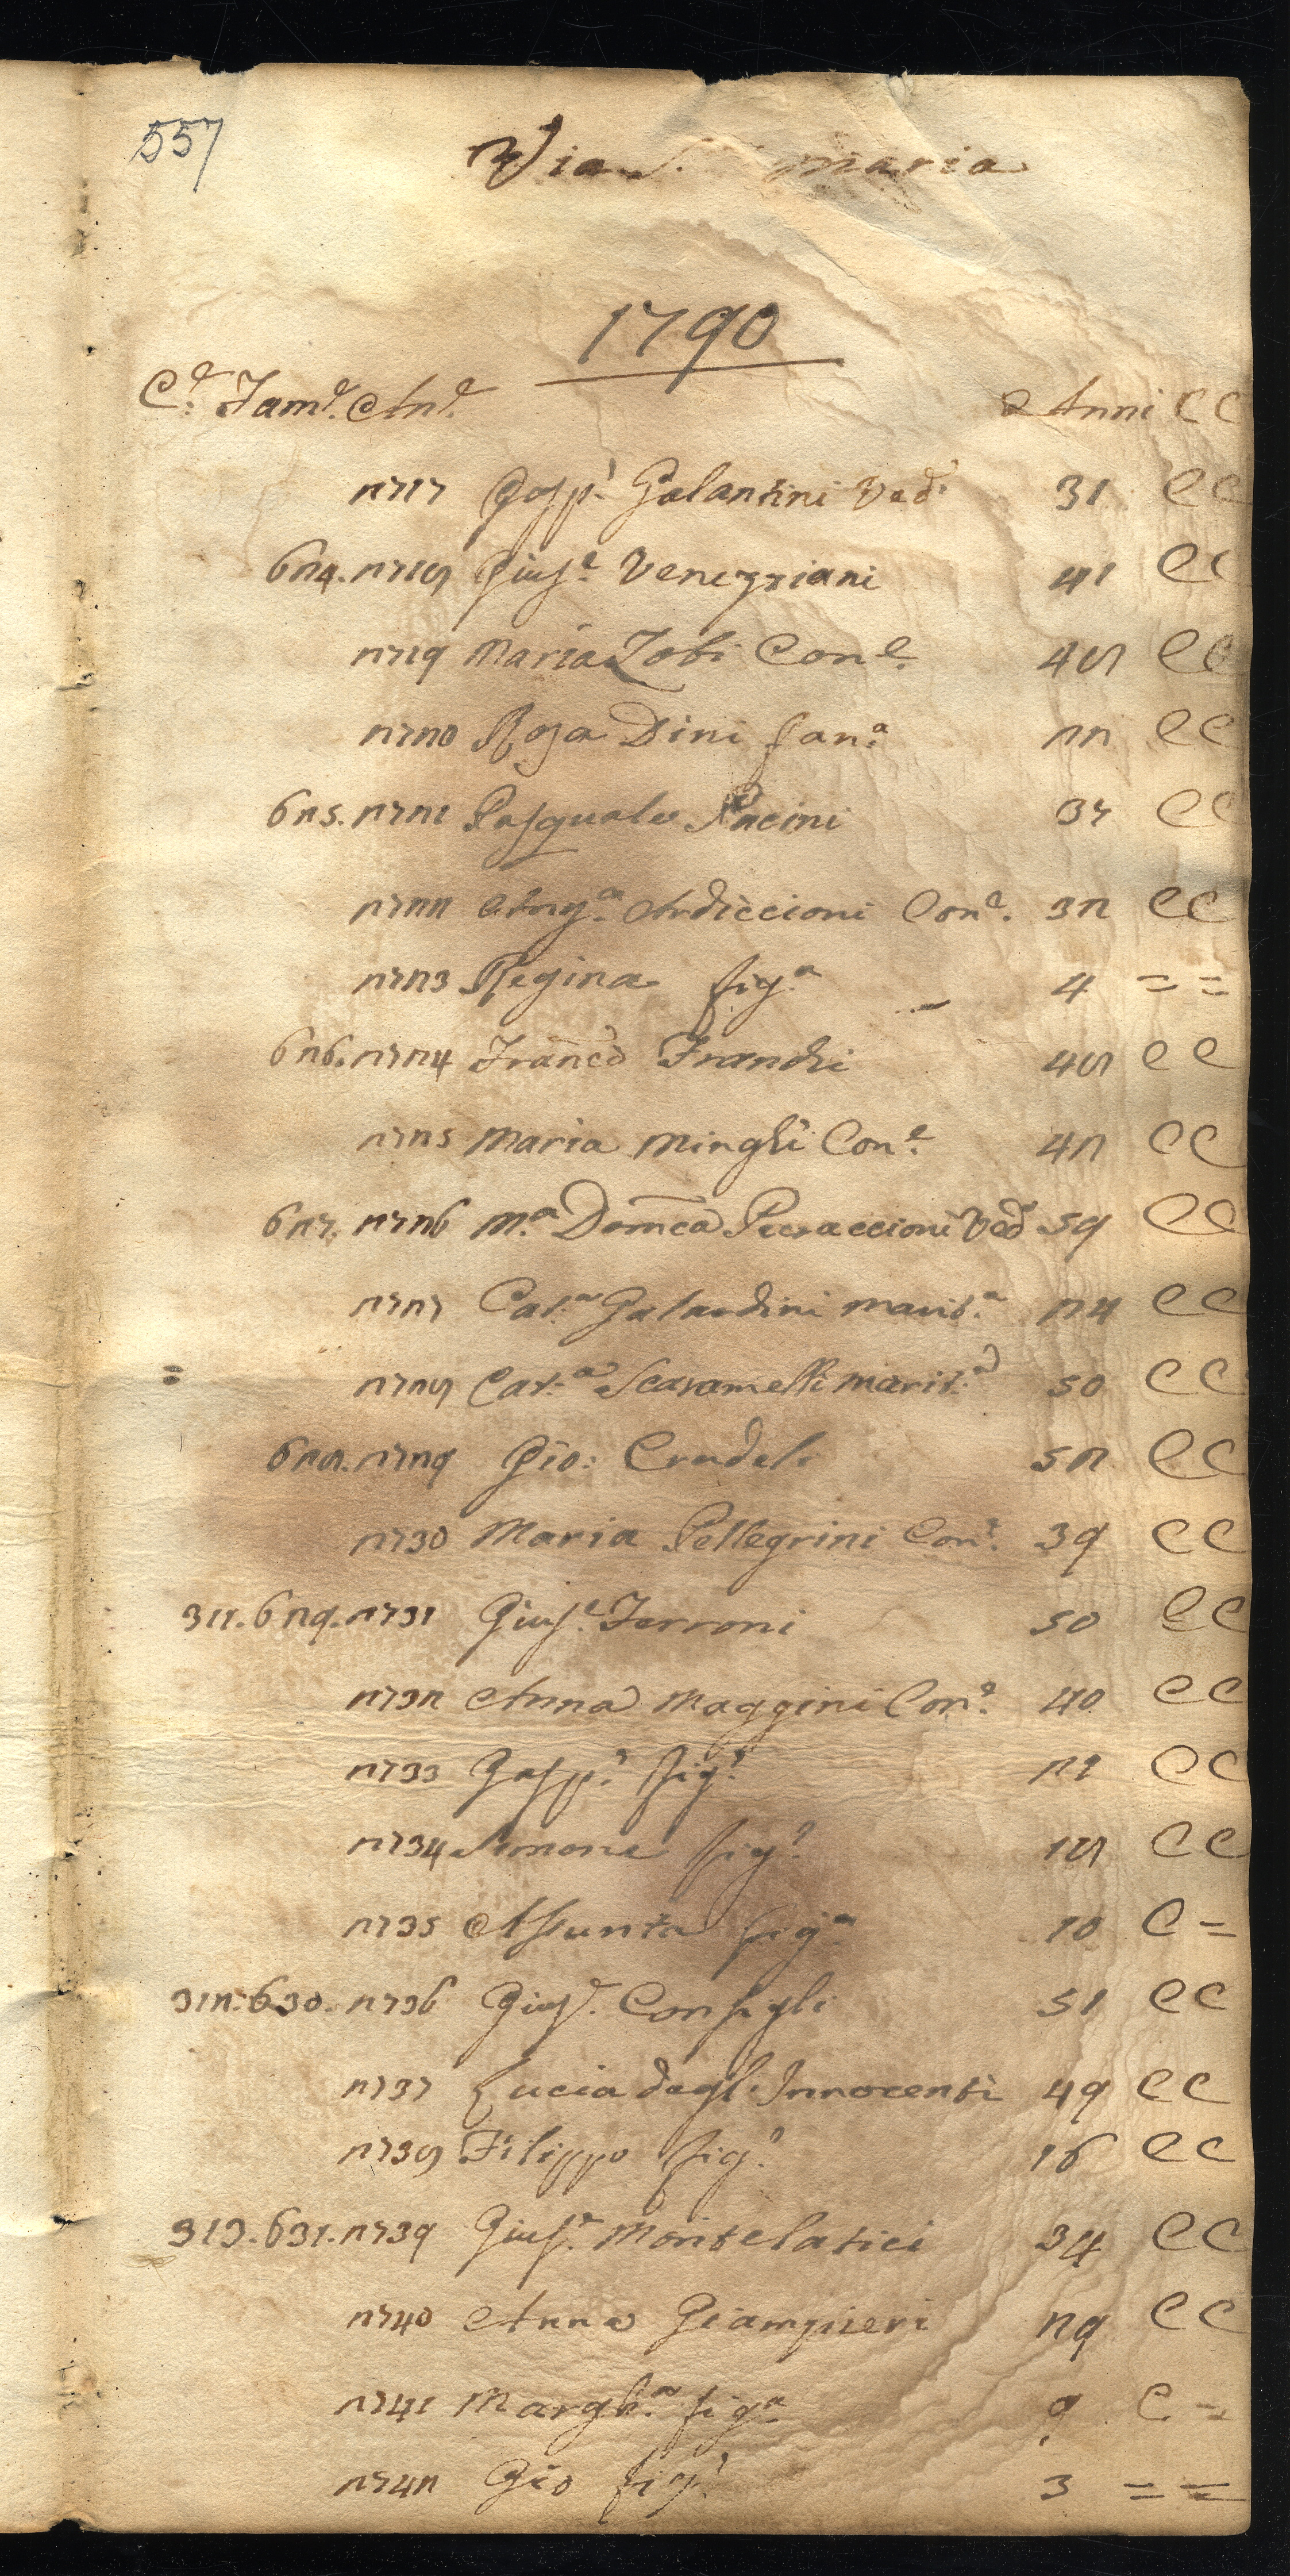 557
Via S. Maria
1790
C.e Fam.e An.e Anni CC
2717 Gasp.e Galantini Ved.o 31 CC
624. 2718 Gius.e Veneziani 41 CC
2719 Maria Zobi Con.e 48 CC
2720 Rosa Dini fan.a 22 CC
625. 2721 Pasquale Pacini 37 CC
2722 Ang.a Ardiccioni Con.e 32 CC
2723 Regina fig.a 4 = =
626. 2724 Franco Franchi 48 CC
2725 Maria Minghi Con.e 42 CC
627. 2726 M.a Domca Pecraccioni Ved.a 59 CC
2727 Cat.a Galardini marit.a 24 CC
= 2728 Cat.a Scaramelli marit.a 50 CC
628. 2729 Gio: Crudeli 52 CC
2730 Maria Pellegrini Con.e 39 CC
311. 629. 2731 Gius.e Ferroni 50 CC
2732 Anna Maggini Con.e 40 CC
2733 Gasp.e fig.o 21 CC
2734 Simone fig.o 18 CC
2735 Assunta fig.a 10 C =
312. 630. 2736 Gius.e Consigli 51 CC
2737 Lucia degl'Innocenti 49 CC
2738 Filippo fig.o 16 CC
313. 631. 2739 Gius.e Montelatici 34 CC
2740 Anna Giampieri 29 CC
2741 Margh.a fig.a 9 C =
2742 Gio fig.o 3 = =